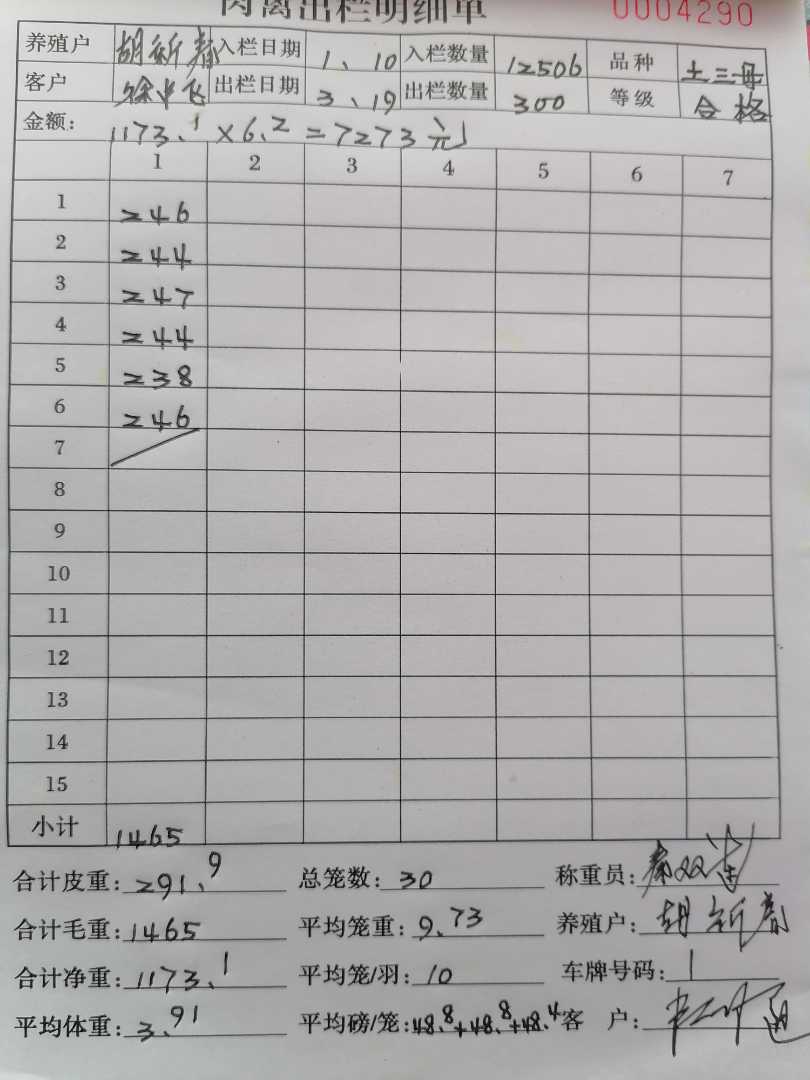 肉禽出栏明细单 0004290
养殖户 胡新春 入栏日期 1、10 入栏数量 12506 品种 土三母
客户 徐中飞 出栏日期 3、19 出栏数量 300 等级 合格
金额: 1173.1×6.2=7273元
1 2 3 4 5 6 7
1 246
2 244
3 247
4 244
5 238
6 246
7
8
9
10
11
12
13
14
15
小计 1465
合计皮重: 291.9 总笼数: 30 称重员: 秦双
合计毛重: 1465 平均笼重: 9.73 养殖户: 胡新春
合计净重: 1173.1 平均笼/羽: 10 车牌号码: 1
平均体重: 3.91 平均磅/笼: 48.8+48.8+48.4 客 户: